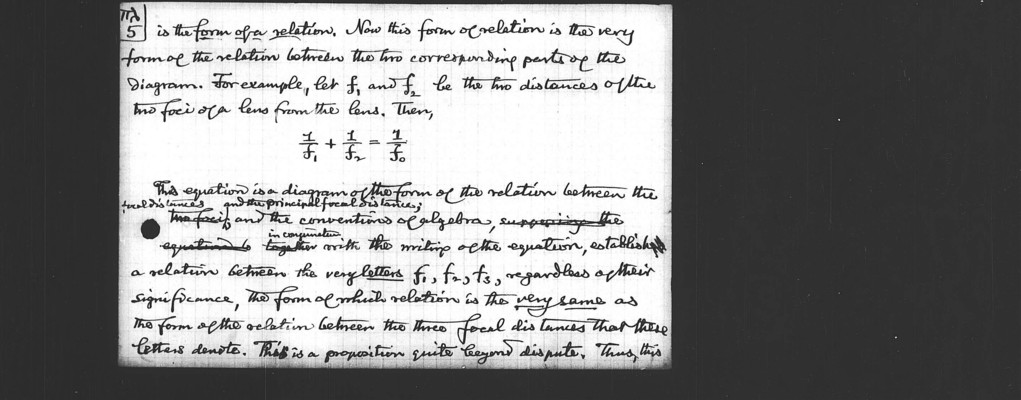 πλ
5
is the form of a relation. Now this form of relation is the very
form of the relation between the two corresponding parts of the
diagram. For example, let f₁ and f₂ be the two distances of the
two foci of a lens from the lens. Then,
1/f₁ + 1/f₂ = 1/f₀
This equation is a diagram of the form of the relation between the
focal distances and the principal focal distance;
two foci; and the conventions of algebra, supposing the
in conjunction
equation is together with the writing of the equation, establish
a relation between the very letters f₁, f₂, f₃, regardless of their
significance, the form of which relation is the very same as
the form of the relation between the three focal distances that these
letters denote. This is a proposition quite beyond dispute. Thus, this